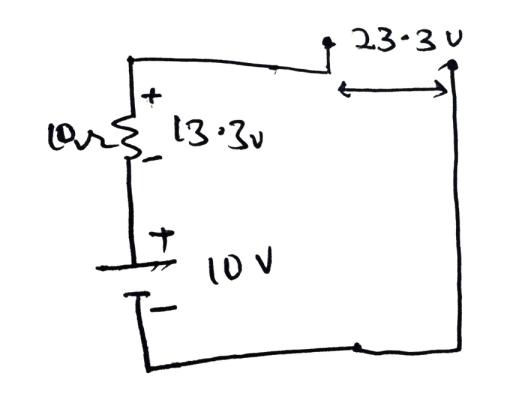 23.3V
+
10Ω 13.3v
-
+
10 V
-